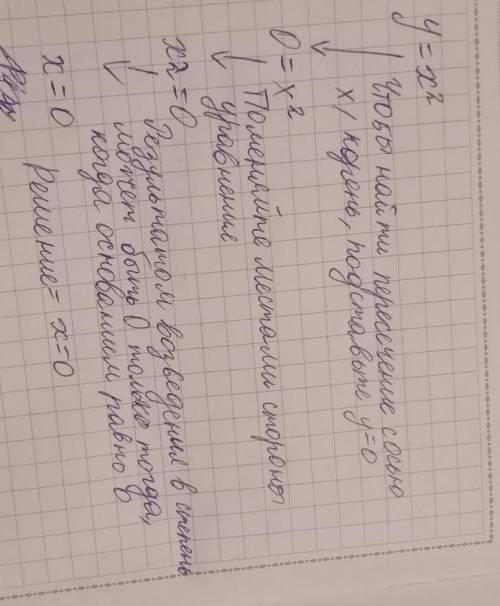 y = x²
↓ Чтобы найти пересечение с осью
x / корень, подставьте y=0
0 = x²
↓ Поменяйте местами стороны
уравнение
x² = 0
↓ Результатом возведения в степень
может быть 0 только тогда,
когда основанием равно 0
x = 0 Решение = x=0